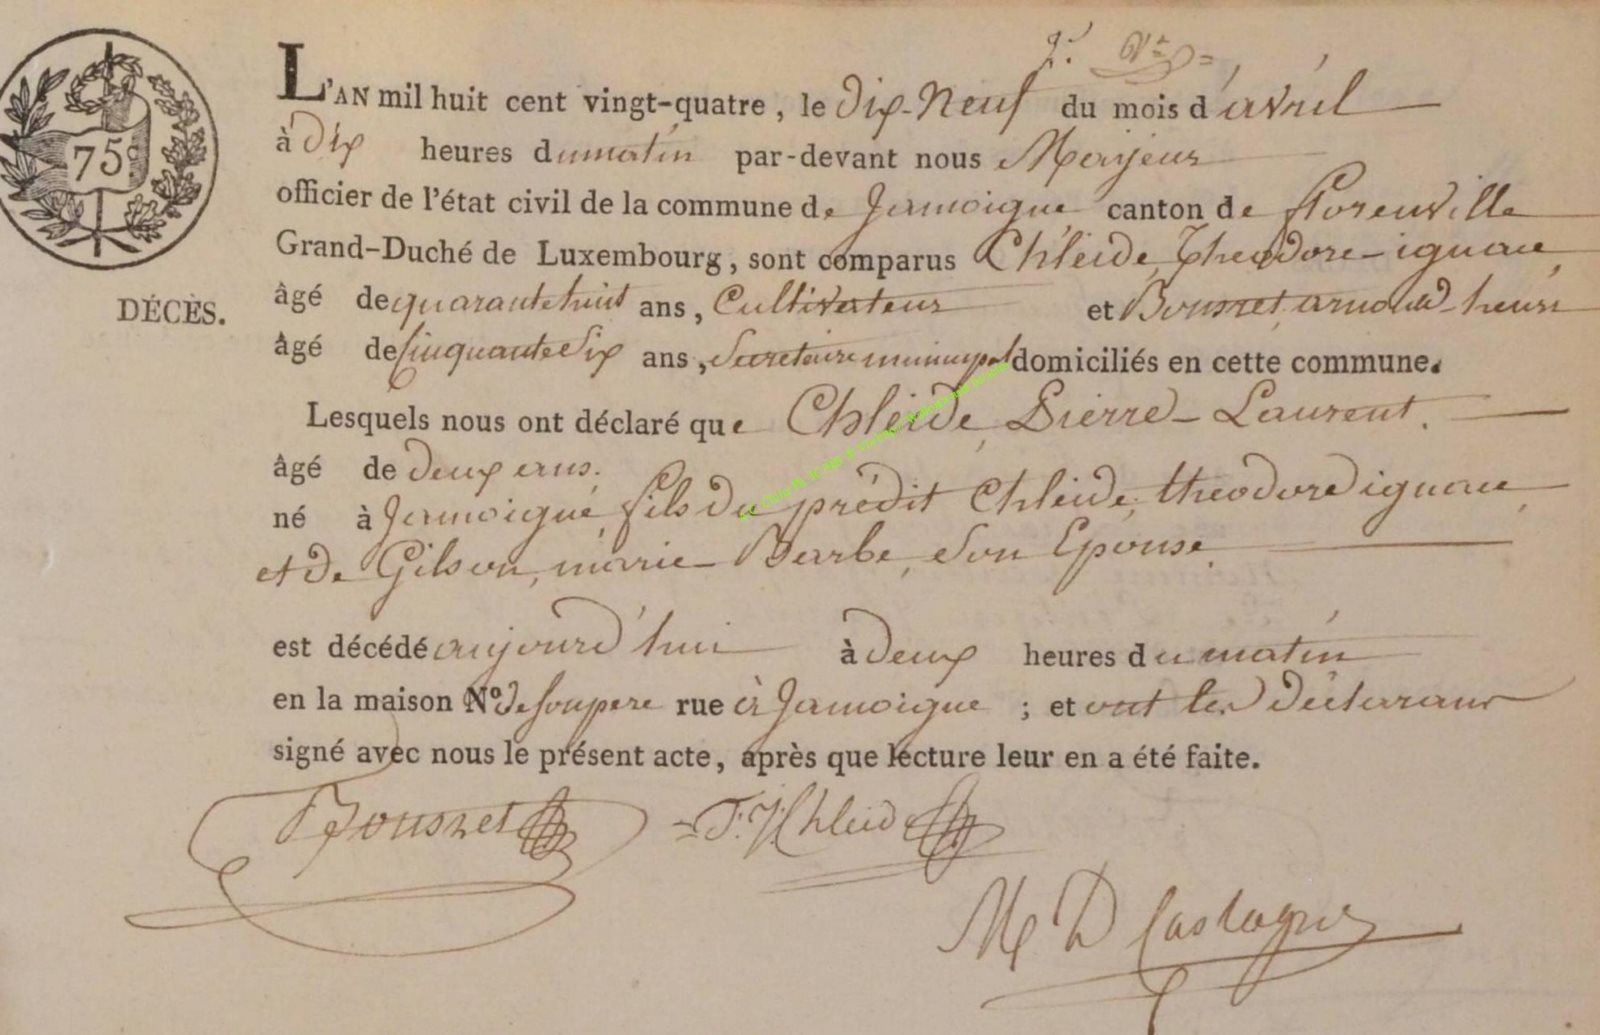 L'AN mil huit cent vingt-quatre, le dix-Neuf du mois d'avril
75c
à dix heures du matin par-devant nous Mayeur
officier de l'état civil de la commune de Jamoigne canton de florenville
Grand-Duché de Luxembourg, sont comparus Chleide, Theodore-ignace,
DÉCÈS.
âgé de quarante huit ans, Cultivateur et Bousret, arnould-henri
âgé de Cinquante Six ans, Secretaire municipal domiciliés en cette commune.
Lesquels nous ont déclaré que Chleide, Pierre-Laurent.
âgé de deux ans.
né à Jamoigne, fils du prédit Chleide, theodore ignace,
et de Gilson, marie-Barbe, Son Epouse.
est décédé aujourd'hui à deux heures du matin
en la maison N° de Son pere rue à Jamoigne ; et ont les déclarans
signé avec nous le présent acte, après que lecture leur en a été faite.
Bousret T.I. Chleide